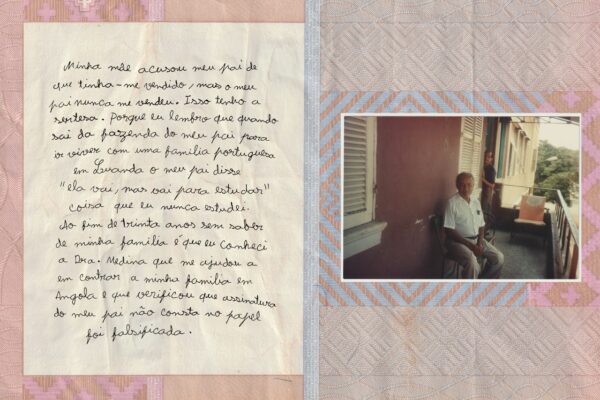 Minha mãe acusou meu pai de
que tinha-me vendido, mas o meu
pai nunca me vendeu. Isso tenho a
serteza. Porque eu lembro que quando
sai da fazzenda do meu pai para
ir viver com uma familia portuguesa
em Luanda o meu pai disse
"ela vai, mas vai para estudar"
coisa que eu nunca estudei.
Ao fim de trinta anos sem saber
de minha familia é que eu conheci
a Dra. Medina que me ajudou a
em contrar a minha familia em
Angola e que verificou que assinatura
do meu pai não consta no papel
foi falsificada.